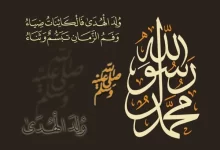 وُلِدَ الهُدَىٰ فَالكَائِنَاتُ ضِيَاءُ
وَفَمُ الزَّمَانِ تَبَسُّمٌ وَثَنَاءُ
محمد رسول الله
صلى الله عليه وسلم
صلى الله عليه وسلم
وُلِدَ الهُدَىٰ